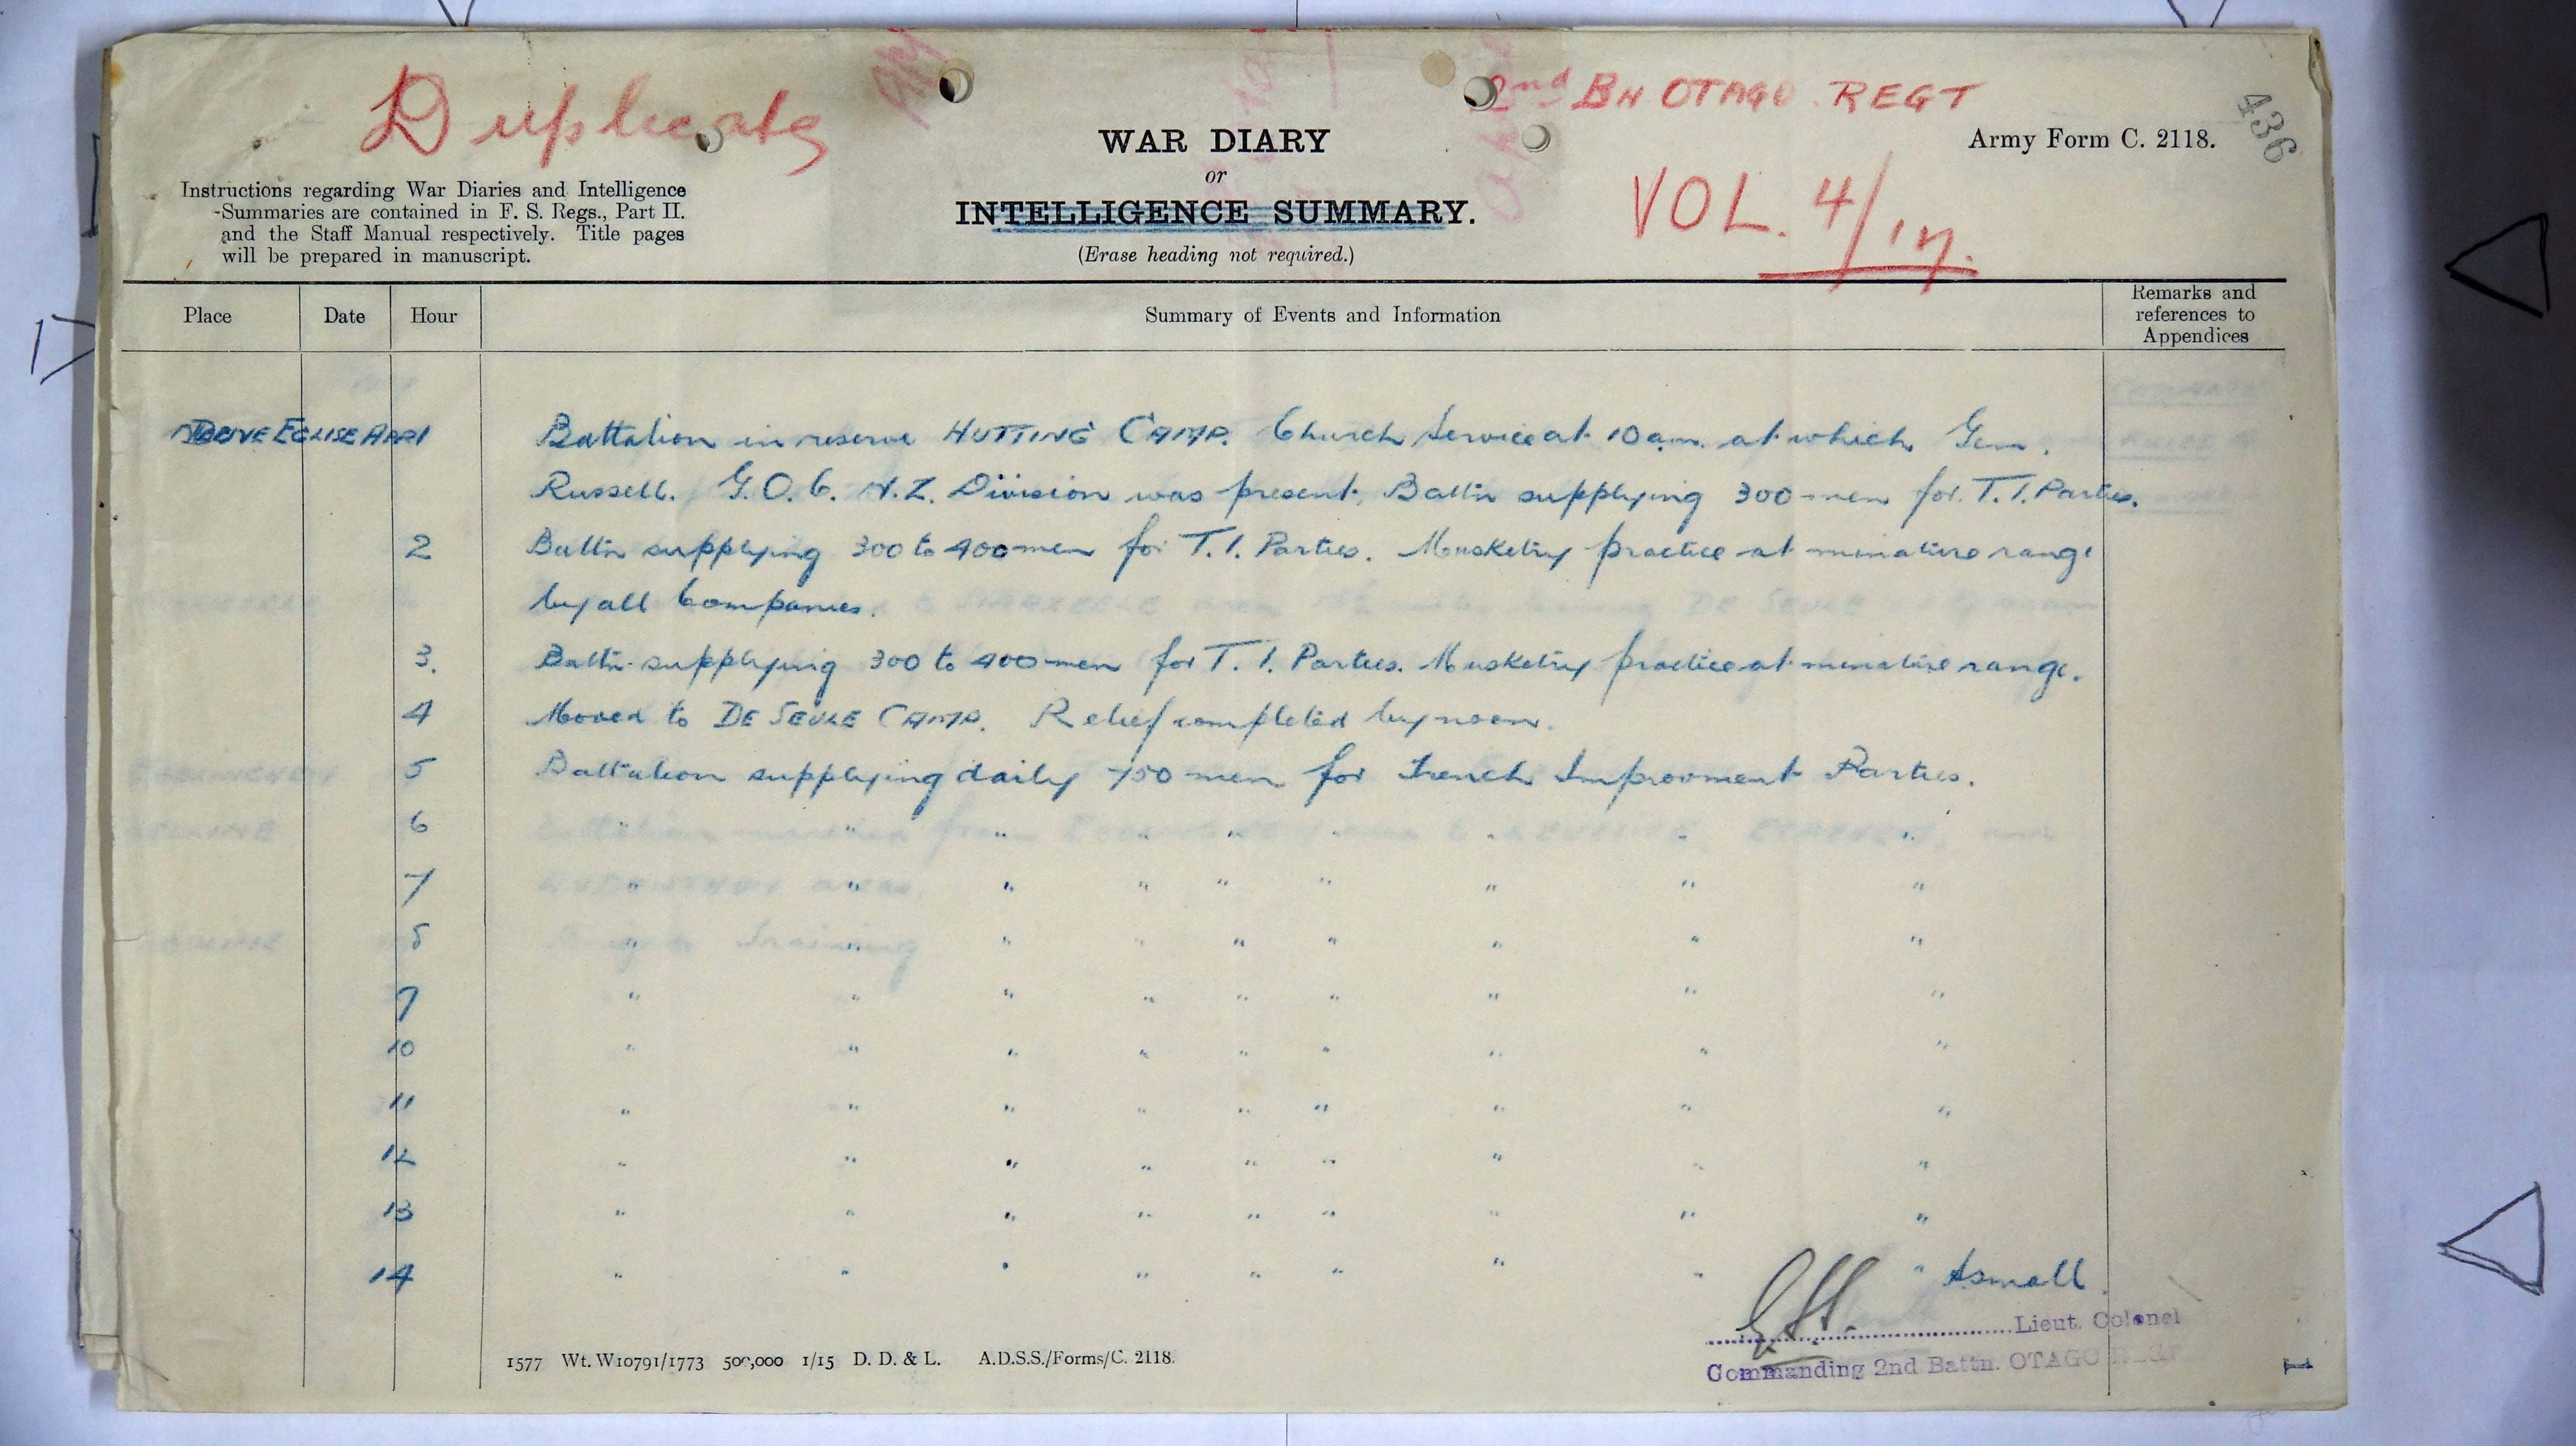 Duplicate
2nd BN OTAGO REGT
436
WAR DIARY
Army Form C. 2118.
or
INTELLIGENCE SUMMARY.
VOL. 4/17.
(Erase heading not required.)
Instructions regarding War Diaries and Intelligence
Summaries are contained in F. S. Regs., Part II.
and the Staff Manual respectively. Title pages
will be prepared in manuscript.
Place Date Hour Summary of Events and Information Remarks and references to Appendices
EGLISE Apr 1 Battalion in reserve HUTTING CAMP. Church Service at 10 a.m. at which Gen.
Russell. G.O.C. N.Z. Division was present. Battn supplying 300 men for T.I. Parties.
2 Battn supplying 300 to 400 men for T.I. Parties. Musketry practice at minature range
by all Companies.
3. Battn supplying 300 to 400 men for T.I. Parties. Musketry practice at minature range.
4 Moved to DE SEULE CAMP. Relief completed by noon.
5 Battalion supplying daily 750 men for Trench Improvment Parties.
6 " " " " " " " " "
7 " " " " " " " " "
8 " " " " " " " " "
9 " " " " " " " " "
10 " " " " " " " " "
11 " " " " " " " " "
12 " " " " " " " " "
13 " " " " " " " " "
14 " " " " " " " " "
Lieut. Colonel
Commanding 2nd Battn. OTAGO REGT
1577 Wt. W10791/1773 500,000 1/15 D. D. & L. A.D.S.S./Forms/C. 2118.